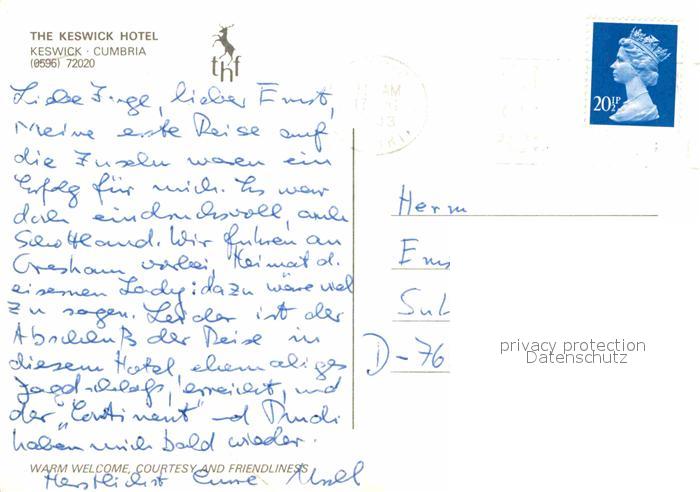 THE KESWICK HOTEL
KESWICK · CUMBRIA
(0596) 72020
thf
Liebe Inge, lieber Ernst,
Meine erste Reise auf
die Inseln waren ein
Erfolg für mich. Es war
doch eindrucksvoll, auch
Schottland. Wir fuhren an
Gresham vorbei, Heimat d.
eisernen Lady: dazu wäre viel
zu sagen. Leider ist der
Abschluß der Reise in
diesem Hotel, ehemaliges
Jagdschloß, erreicht, und
der "Continent" und Trudi
haben mich bald wieder.
WARM WELCOME, COURTESY AND FRIENDLINESS
Herzlichst Eure
AM
20½P
Herrn
Erns
Sul
D-76
privacy protection
Datenschutz